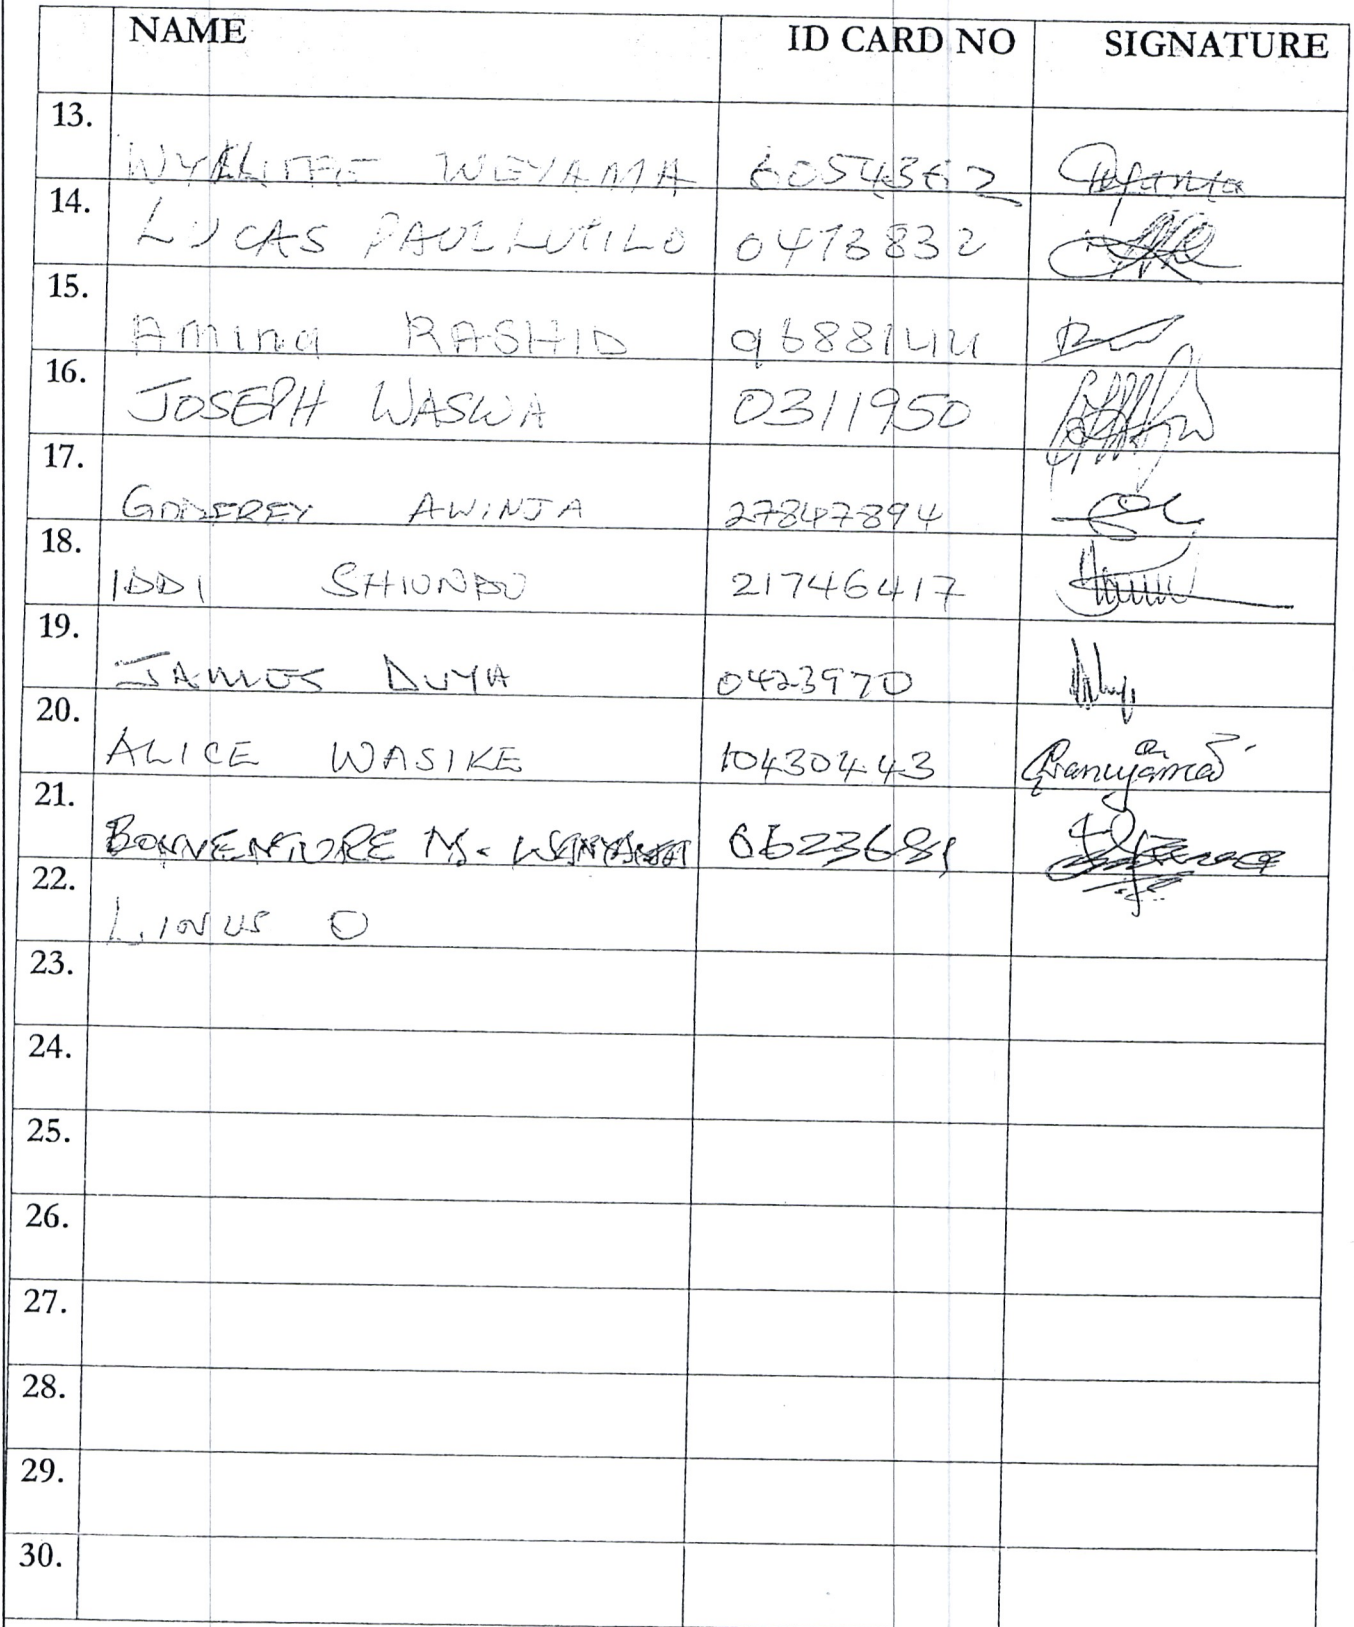 NAME ID CARD NO SIGNATURE
13. WEYAMA 6054362
14. LUCAS PAUL LUTILO 0473832
15. Amina RASHID 9688144
16. JOSEPH WASWA 0311950
17. GODFREY AWINJA 27847894
18. IDDI SHIUNDU 21746417
19. JAMES DUYA 0423970
20. ALICE WASIKE 10430443
21. BONVENTURE M.
22. LINUS O
23.
24.
25.
26.
27.
28.
29.
30.